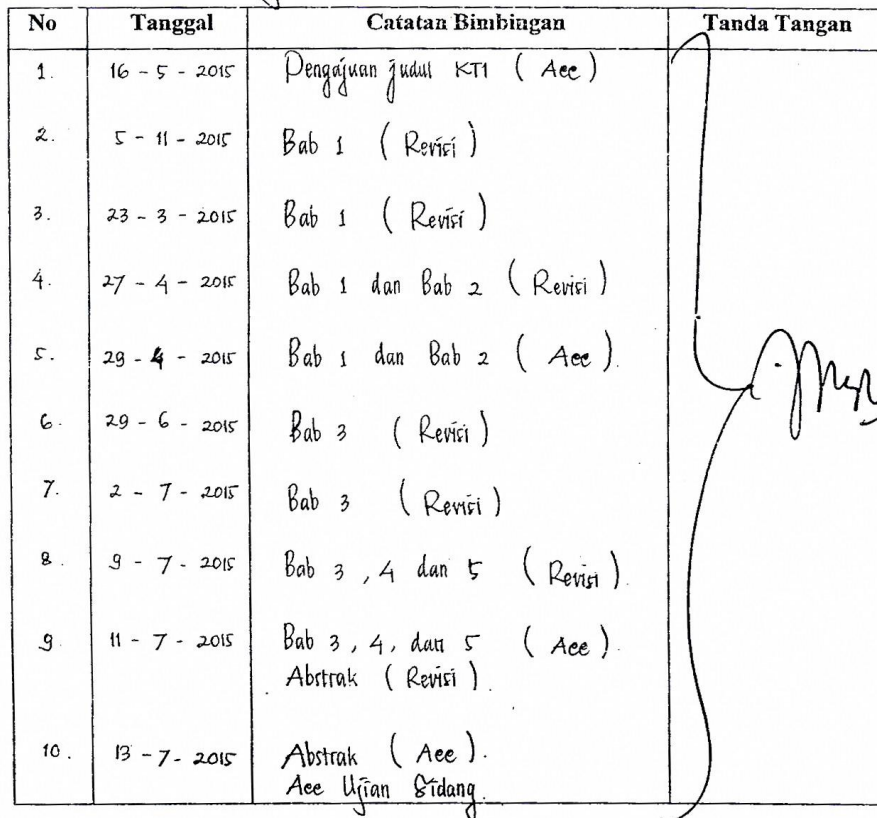 No Tanggal Catatan Bimbingan Tanda Tangan
1. 16 - 5 - 2015 Pengajuan judul KTI ( Acc )
2. 5 - 11 - 2015 Bab 1 ( Revisi )
3. 23 - 3 - 2015 Bab 1 ( Revisi )
4. 27 - 4 - 2015 Bab 1 dan Bab 2 ( Revisi )
5. 29 - 4 - 2015 Bab 1 dan Bab 2 ( Acc ).
6. 29 - 6 - 2015 Bab 3 ( Revisi )
7. 2 - 7 - 2015 Bab 3 ( Revisi )
8. 9 - 7 - 2015 Bab 3, 4 dan 5 ( Revisi ).
9. 11 - 7 - 2015 Bab 3, 4, dan 5 ( Acc ).
Abstrak ( Revisi ).
10. 13 - 7 - 2015 Abstrak ( Acc ).
Acc Ujian Sidang.